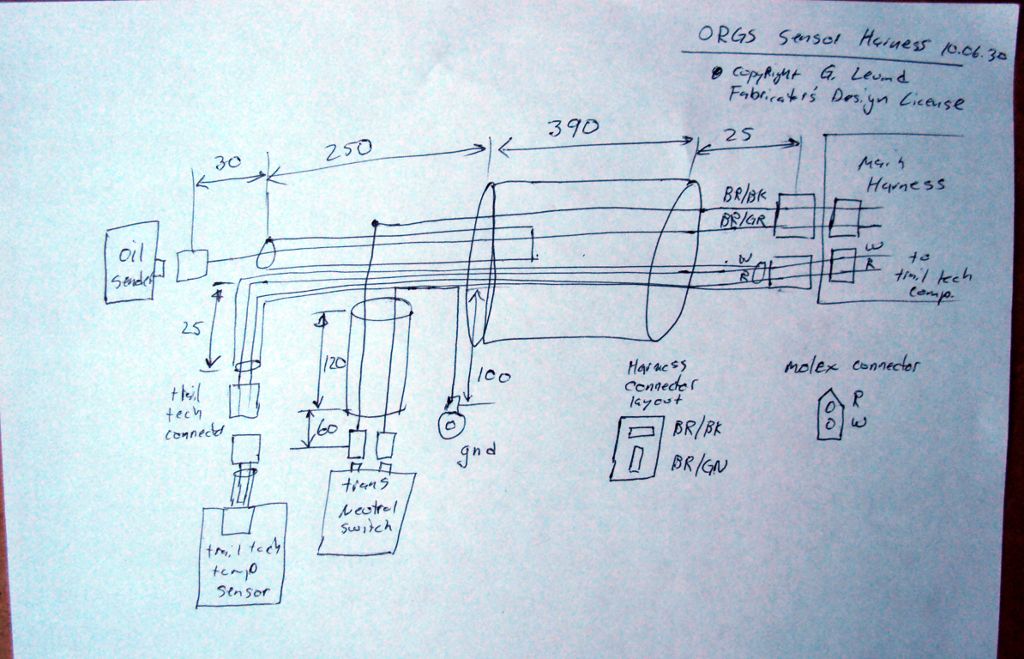 ORGS Sensor Harness 10.06.30
Copyright G. Leund
Fabricator's Design License
30
250
390
25
BR/BK
BR/GR
Main
Harness
W
R
W
R
to
trail tech
comp.
oil
sender
25
trail
tech
connector
120
60
100
gnd
trans
Neutral
switch
trail tech
temp
sensor
Harness
Connector
layout
BR/BK
BR/GN
molex connector
R
W